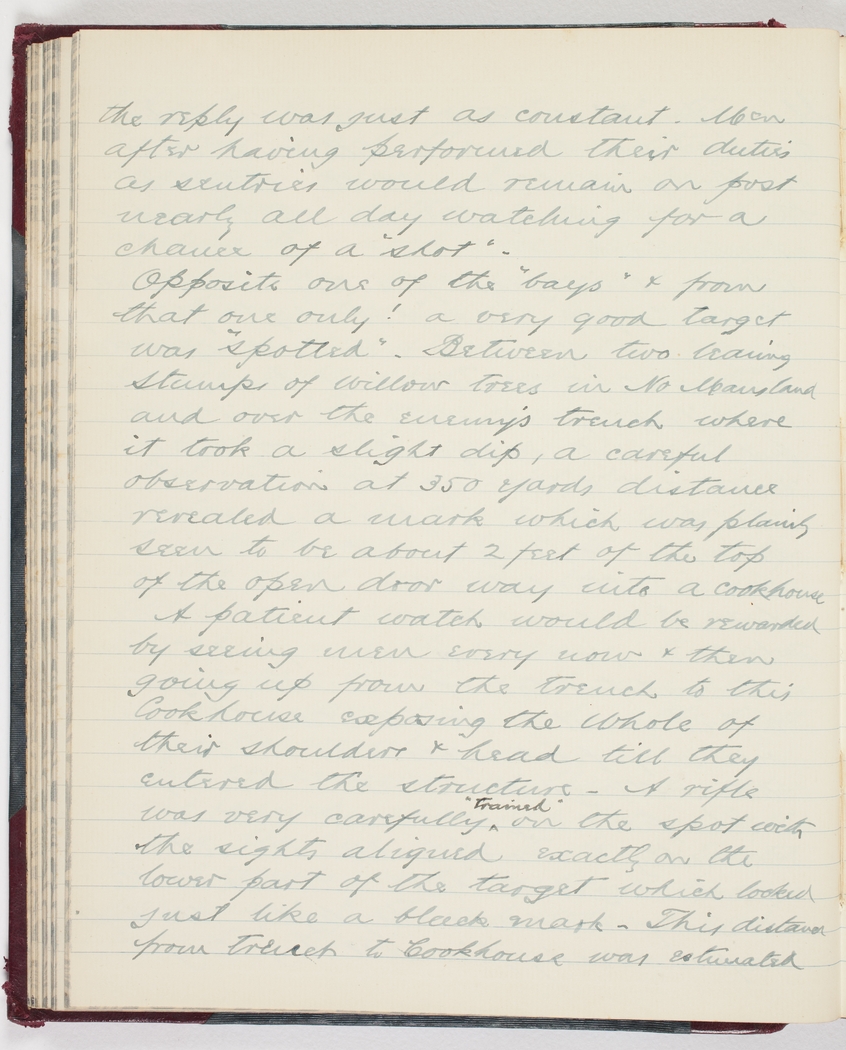 the reply was just as constant. Men
after having performed their duties
as sentries would remain on post
nearly all day watching for a
chance of a "shot".
Opposite one of the "bays" & from
that one only! a very good target
was "spotted". Between two leaning
stumps of willow trees in No Mansland
and over the enemy's trench where
it took a slight dip, a careful
observation at 350 yards distance
revealed a mark which was plainly
seen to be about 2 feet of the top
of the open door way into a cookhouse
A patient watch would be rewarded
by seeing men every now & then
going up from the trench to this
Cookhouse exposing the whole of
their shoulders & head till they
entered the structure - A rifle
was very carefully "trained" on the spot with
the sights aligned exactly on the
lower part of the target which looked
just like a black mark - This distance
from trench to Cookhouse was estimated